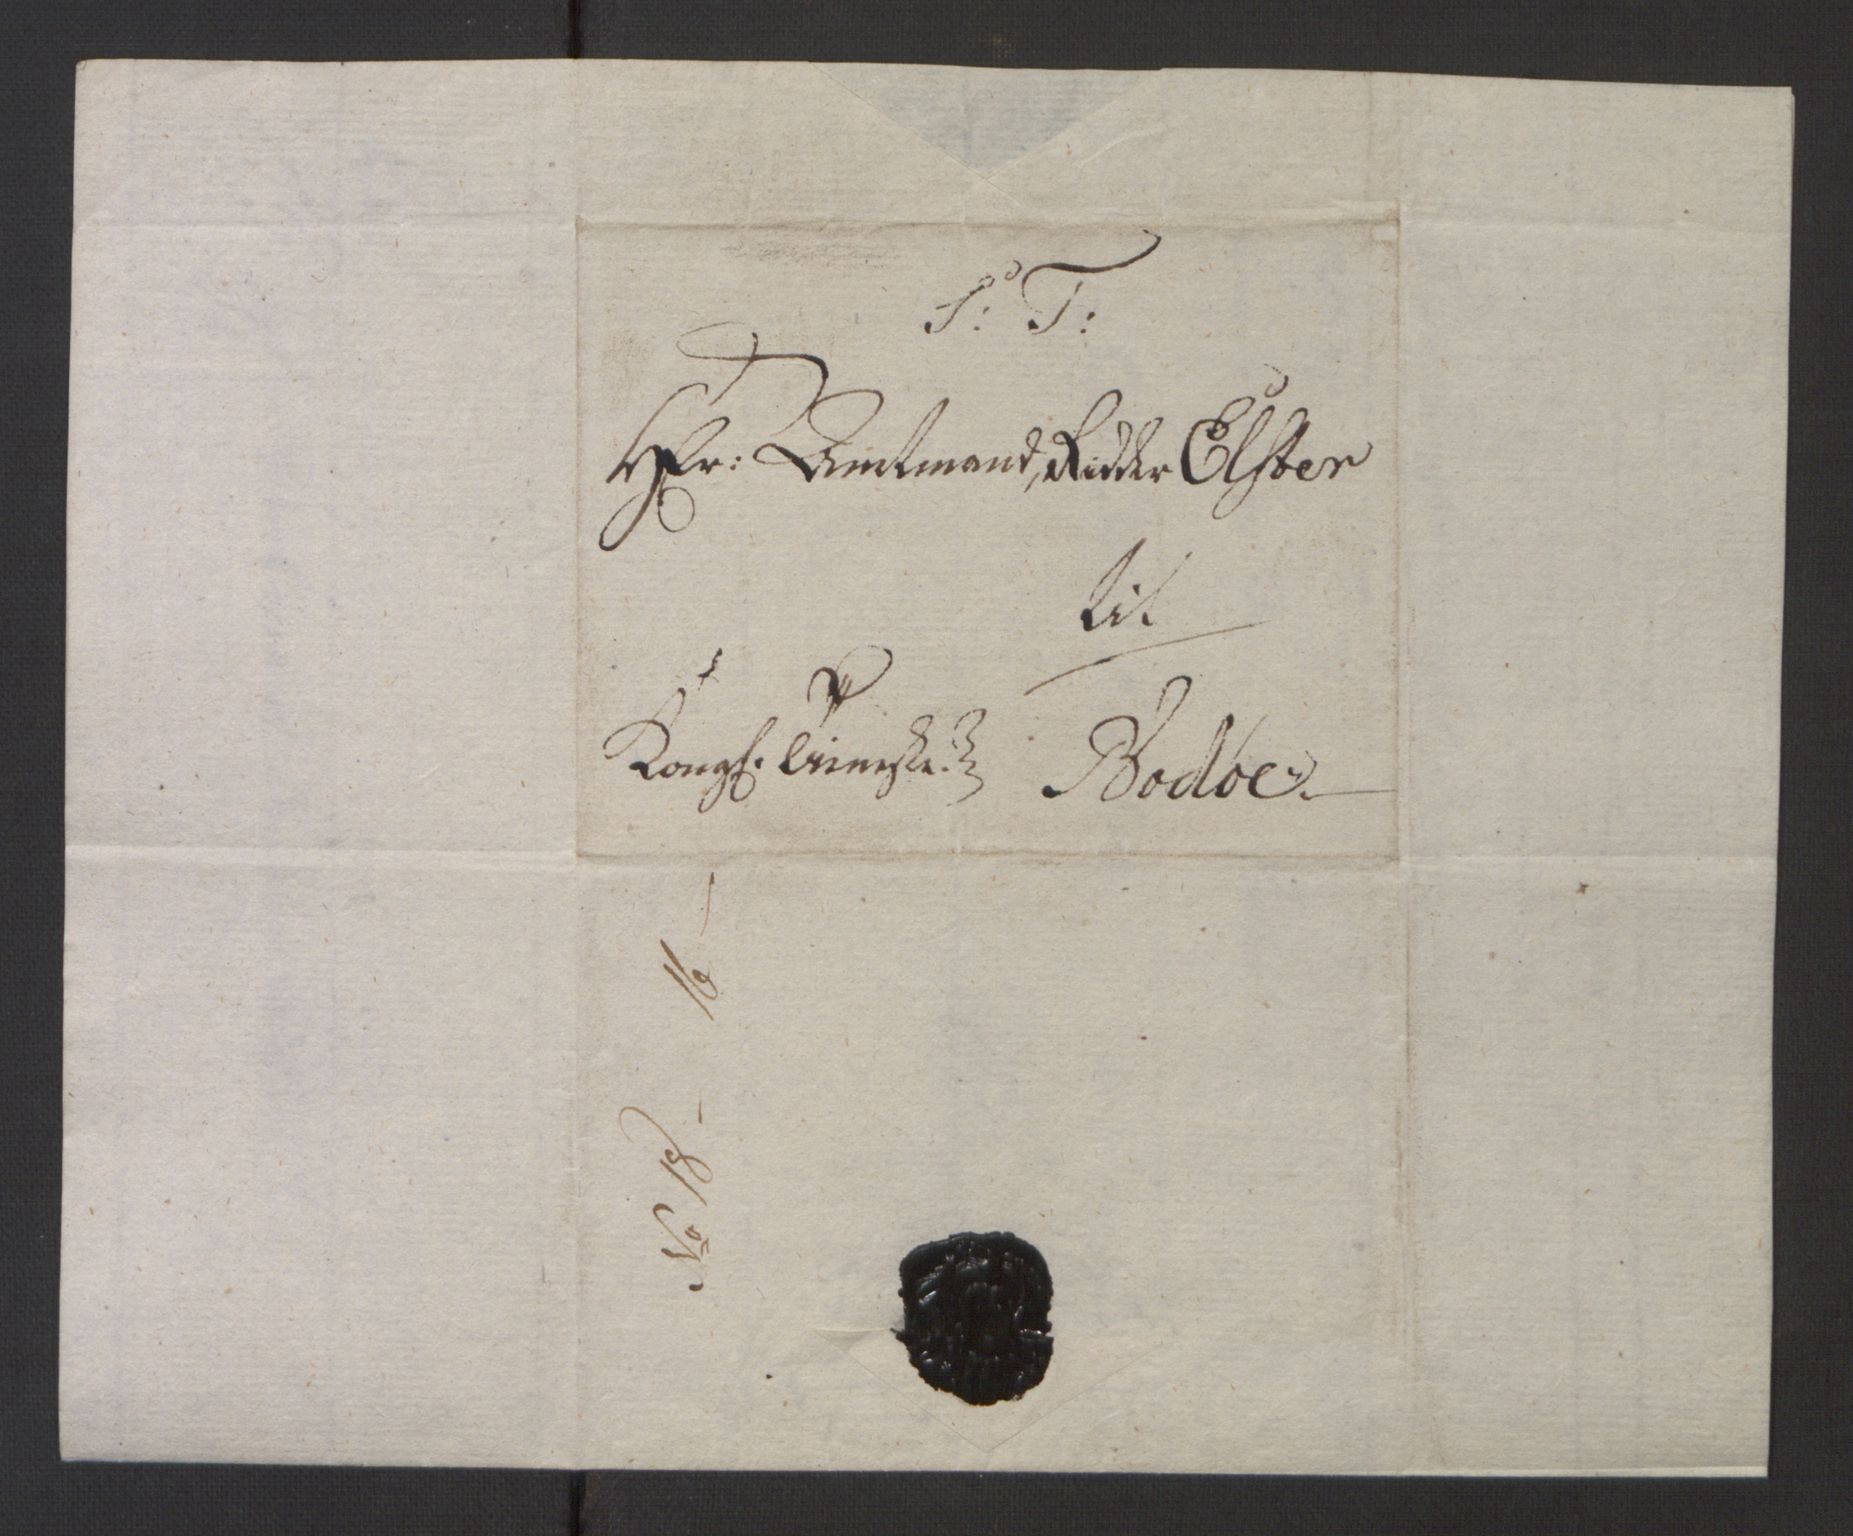 S: T:
Herr: Amtmand, Ridder Elster
til
Kongl. Tieneste. Bodøe.
No 18 - 16